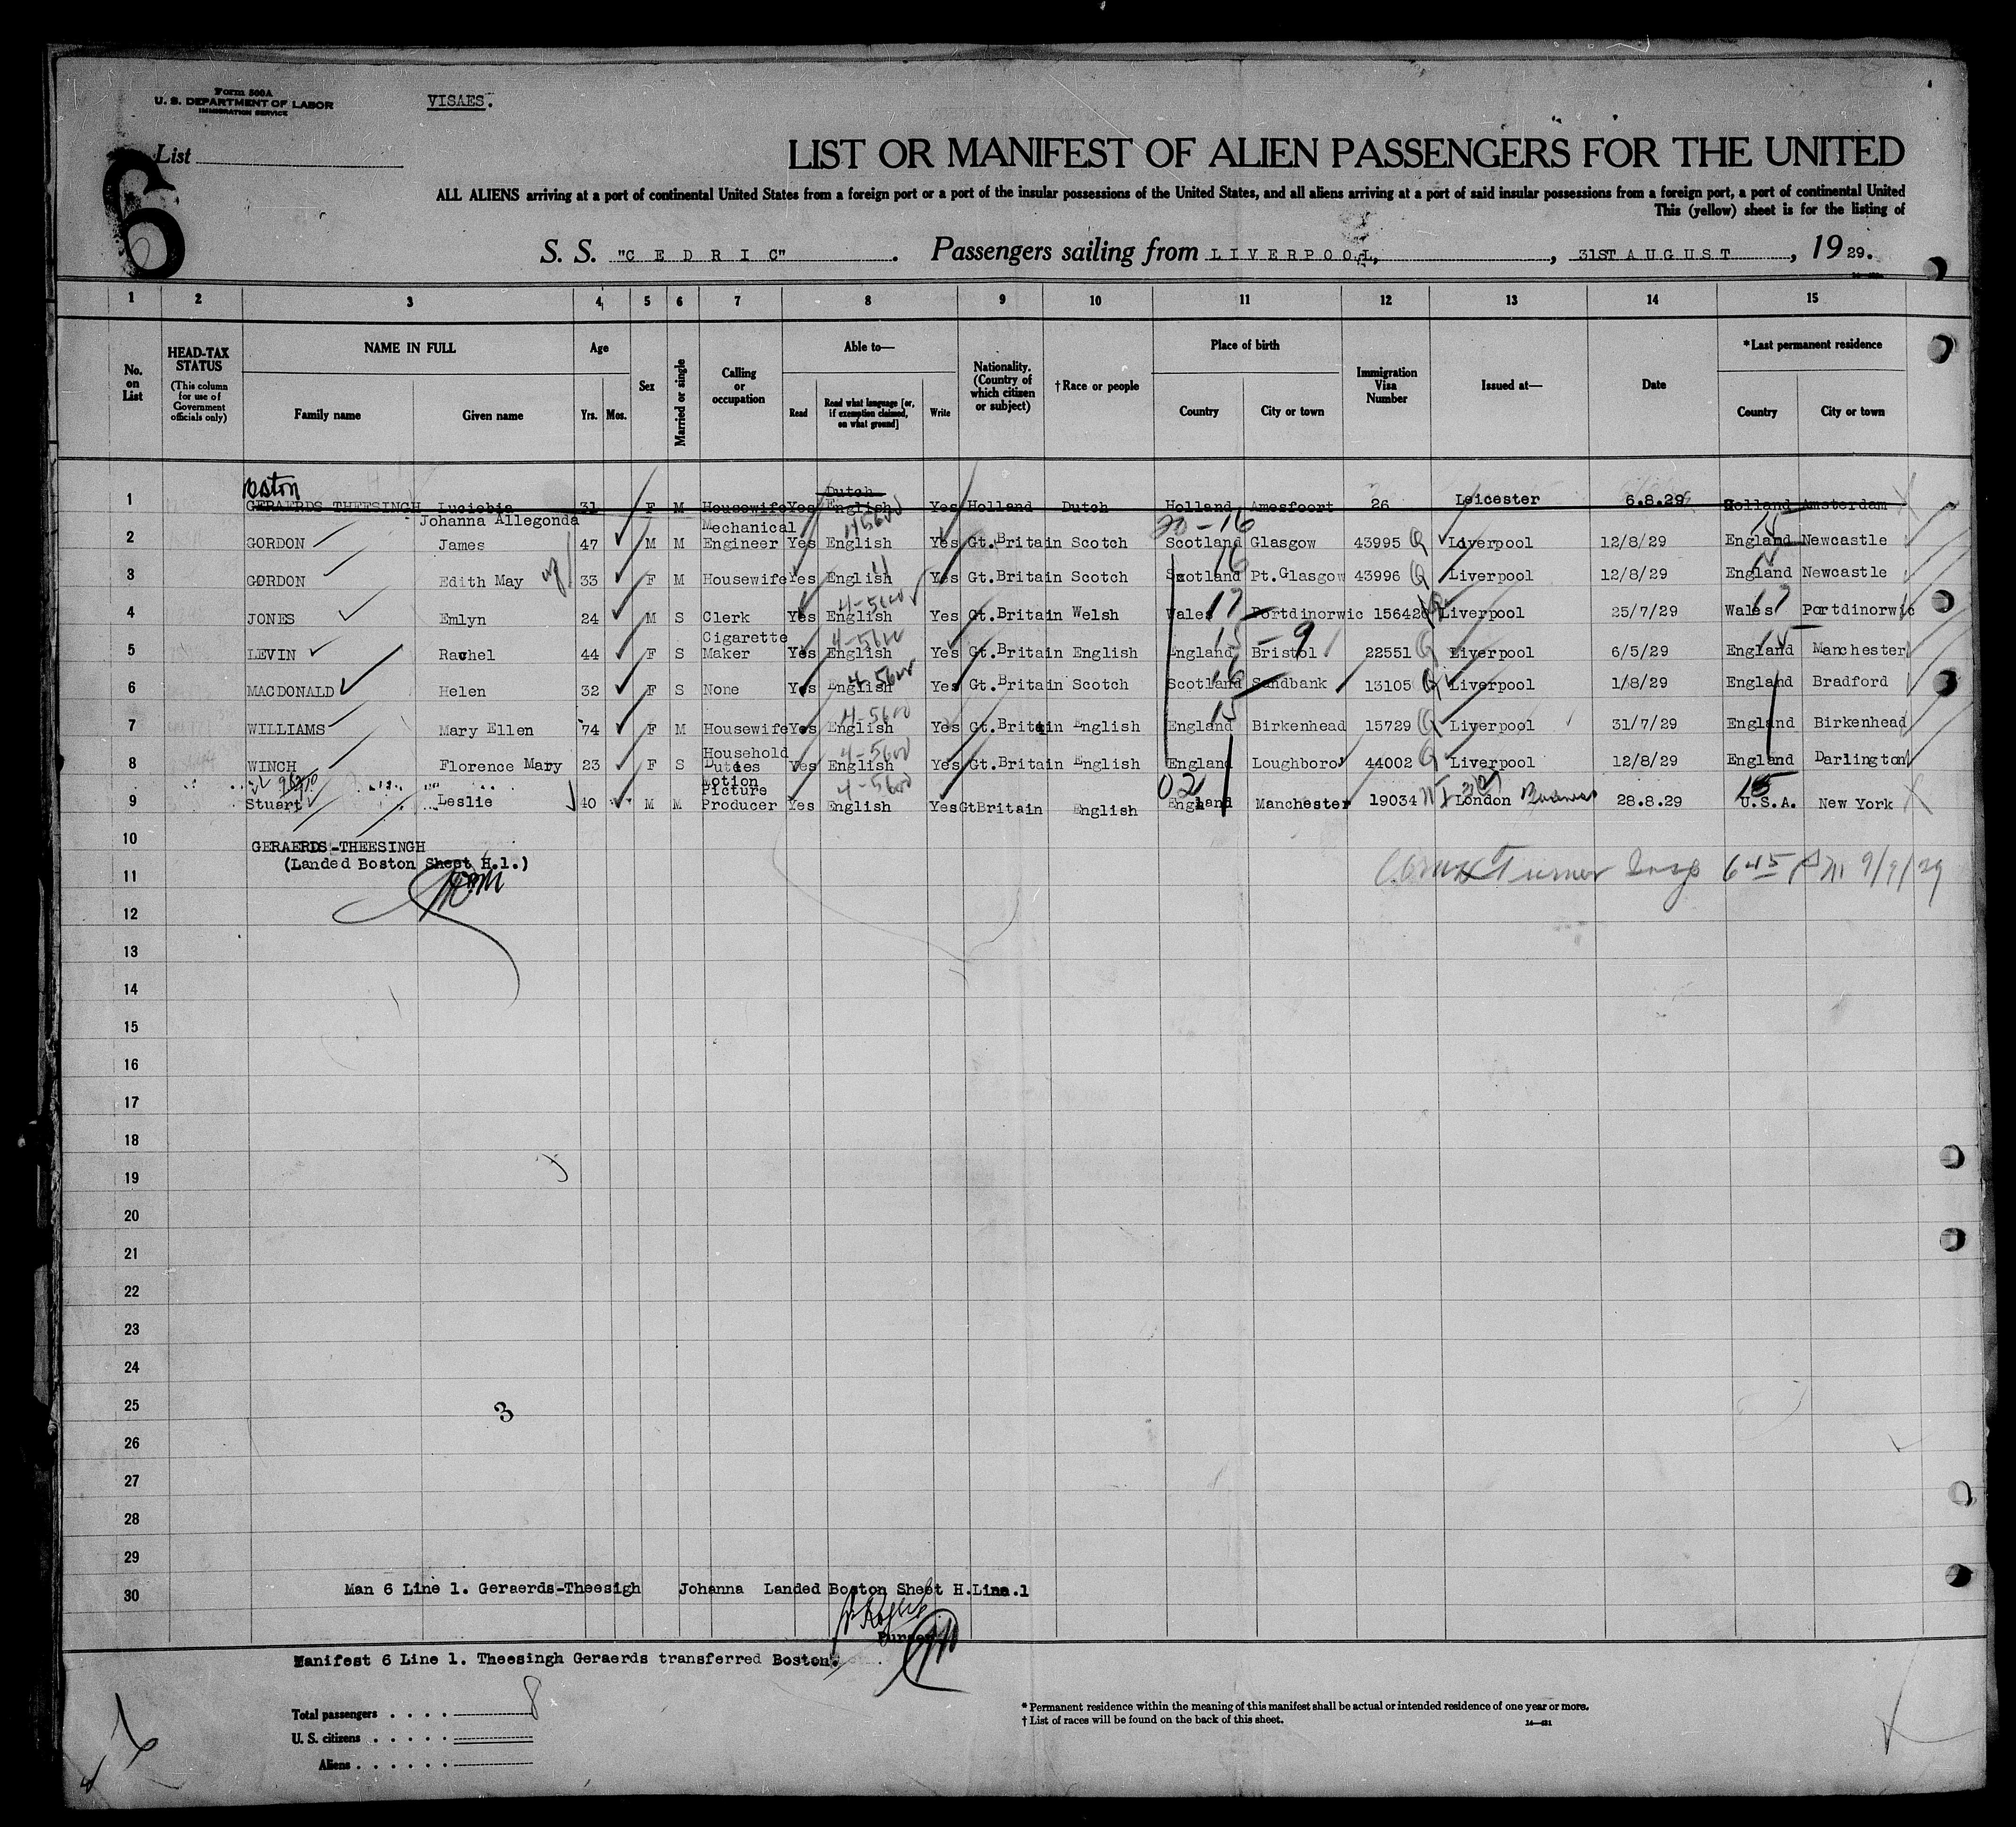 Form 500A
U. S. DEPARTMENT OF LABOR
IMMIGRATION SERVICE
VISAES.
List
6
LIST OR MANIFEST OF ALIEN PASSENGERS FOR THE UNITED
ALL ALIENS arriving at a port of continental United States from a foreign port or a port of the insular possessions of the United States, and all aliens arriving at a port of said insular possessions from a foreign port, a port of continental United
This (yellow) sheet is for the listing of
S. S. "C E D R I C" . Passengers sailing from L I V E R P O O L, , 31ST A U G U S T , 19 29.
1 2 3 4 5 6 7 8 9 10 11 12 13 14 15
No. on List
HEAD-TAX STATUS
(This column for use of Government officials only)
NAME IN FULL
Family name Given name
Age
Yrs. Mos.
Sex
Married or single
Calling or occupation
Able to—
Read
Read what language [or, if exemption claimed, on what ground]
Write
Nationality. (Country of which citizen or subject)
†Race or people
Place of birth
Country City or town
Immigration Visa Number
Issued at—
Date
*Last permanent residence
Country City or town
Dutch
1 GERAERDS THEESINGH 31 F M Housewife Yes English Yes Holland Dutch Holland Amesfoort 26 Leicester 6.8.29 Holland Amsterdam
Johanna Allegonda
20-16
2 GORDON James 47 M M Mechanical Engineer Yes English Yes Gt.Britain Scotch Scotland Glasgow 43995 Q Liverpool 12/8/29 England Newcastle
3 GORDON Edith May 33 F M Housewife Yes English Yes Gt.Britain Scotch Scotland Pt.Glasgow 43996 Q Liverpool 12/8/29 England Newcastle
4 JONES Emlyn 24 M S Clerk Yes English Yes Gt.Britain Welsh Wales Portdinorwic 156420 Liverpool 25/7/29 Wales Portdinorwic
5 LEVIN Rachel 44 F S Cigarette Maker Yes English Yes Gt.Britain English England Bristol 22551 Q Liverpool 6/5/29 England Manchester
6 MACDONALD Helen 32 F S None Yes English Yes Gt.Britain Scotch Scotland Sandbank 13105 Q Liverpool 1/8/29 England Bradford
7 WILLIAMS Mary Ellen 74 F M Housewife Yes English Yes Gt.Britain English England Birkenhead 15729 Q Liverpool 31/7/29 England Birkenhead
8 WINCH Florence Mary 23 F S Household Duties Yes English Yes Gt.Britain English England Loughboro 44002 Q Liverpool 12/8/29 England Darlington
9 Stuart Leslie 40 M M Motion Picture Producer Yes English Yes GtBritain English England Manchester 19034 London 28.8.29 U.S.A. New York
10 GERAERDS-THEESINGH
(Landed Boston Sheet H.1.)
11 Turner Insp 6 45 PM 9/9/29
12
13
14
15
16
17
18
19
20
21
22
23
24
25 3
26
27
28
29
30 Man 6 Line 1. Geraerds-Theesigh Johanna Landed Boston Sheet H.Line.1
Purser
Manifest 6 Line 1. Theesingh Geraerds transferred Boston.
Total passengers . . . . 8
U. S. citizens . . . . .
Aliens . . . . . .
* Permanent residence within the meaning of this manifest shall be actual or intended residence of one year or more.
† List of races will be found on the back of this sheet.